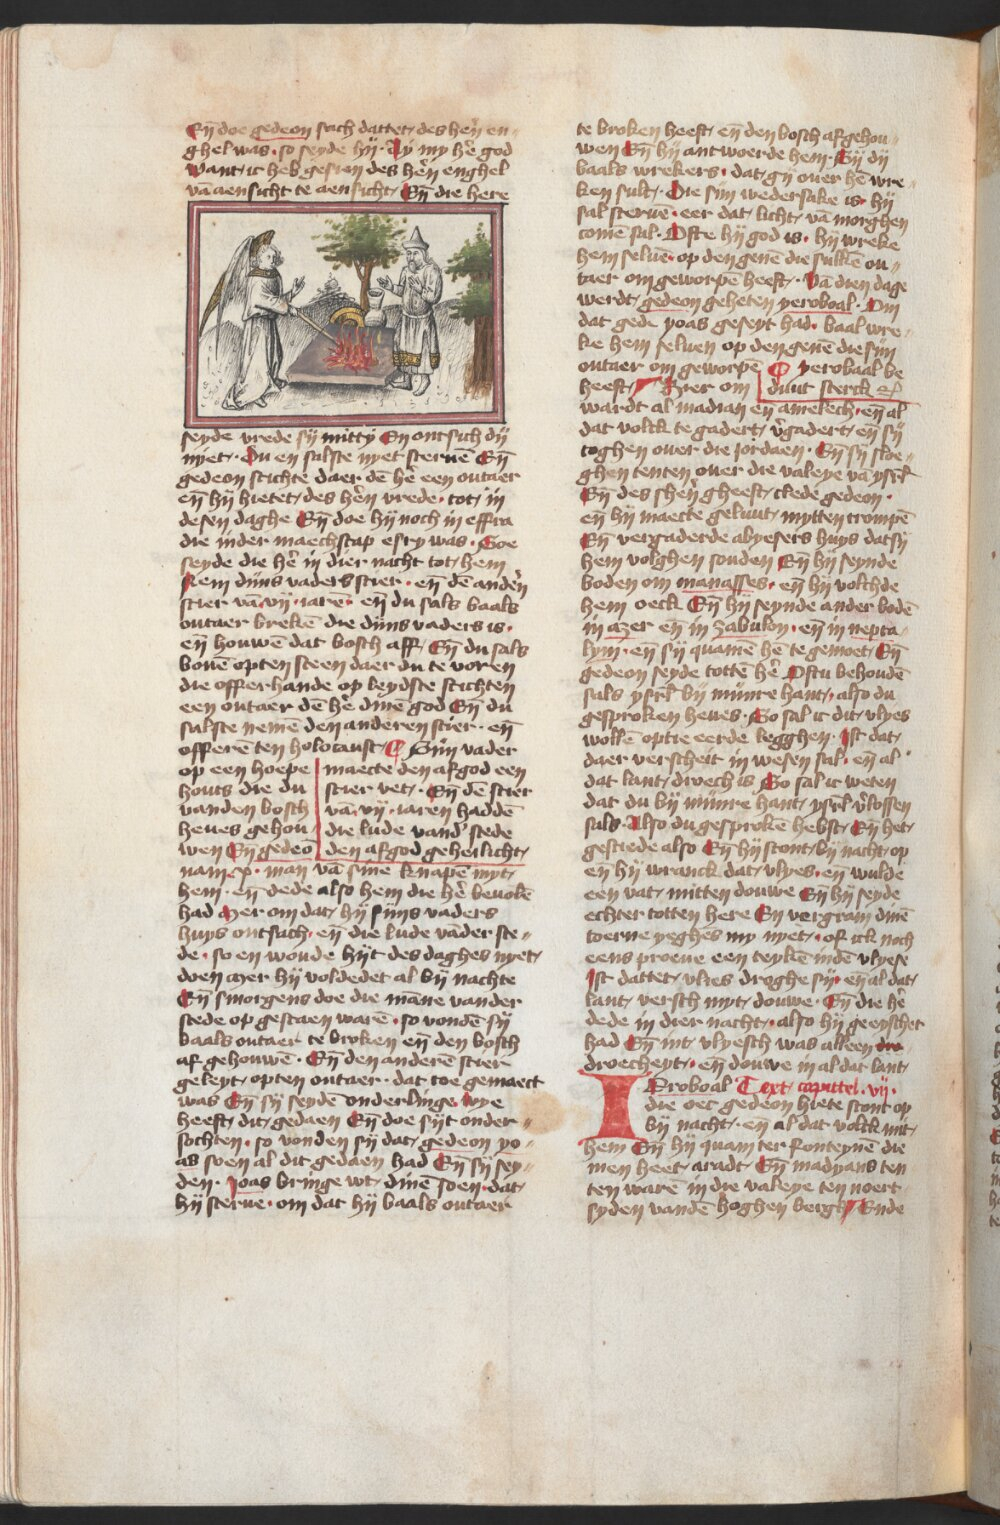 En̄ doe gedeon sach dattet des hēn en„
ghel was · so seyde hij · Ay my hē god
want ic heb gesien des hēn enghel
vā aensicht te aensicht · En̄ die here
seyde vrede sij mitty En̄ ontsich dij
nyet · Du en salste nyet steruē En̄
gedeon stichte daer dē hē een outaer
en̄ hij hietet des hēn vrede · tot in
desen daghe En̄ doe hij noch in effra
die inder maechscap esry was · Soe
seyde die hē in dier nacht tot hem
Nem dijns vaders stier · en̄ dē andēn
stier vā vij · iarē · en̄ du sals baals
outaer brekē die dijns vaders is ·
en̄ houwē dat bosch aff · En̄ du sals
bouē opten steen daer du te voren
die offerhande op leydste stichten
een outaer dē hē dinē god En̄ du
salste nemē den anderen stier · en̄
offerē ten holocaust · Sijn vader
op een hoepe maecte den afgod een
houts die du stier vet · En̄ dē stier
vanden bosch vā vij · iaren haddē
heues gehou die lude vand' stede
wen En̄ gedeō den afgod geheilicht
nam x · man vā sine knapē myt
hem · en̄ dede also hem die hē beuolē
had Mer om dat hij sijns vaders
huys ontsach · en̄ die lude vāder ste„
de · so en woude hijt des daghes nyet
doen mer hij voldedet al bij nachte
En̄ smorgens doe die māne vander
stede op gestaen warē · so vondē sij
baals outaer te broken en̄ den bosch
af gehouwē · En̄ den anderē stier
geleyt opten outaer · dat toe gemaect
was En̄ sij seydē onderlinge wye
heeft dit gedaen En̄ doe sijt onder„
sochten · so vonden sij dat gedeon yo„
as soen al dit gedaen had En̄ sij sey„
den · Joas bringe wt dinē soen · dat
hij sterue · om dat hij baals outaer
te broken heeft en̄ den bosch afgehou„
wen En̄ hij antwoerde hem · Sij dij
baals wrekers · dat gij ouer hē wre„
ken sult · Die sijn wedersake is hij
sal steruē · eer dat licht vā morghen
comē sal · Ofte hij god is · hij wreke
hem seluē · op den genē die sulkē ou„
taer om geworpē heeft · Vā dien dage
werdt gedeon geheten yeroboal · Om
dat gede yoas geseyt had · baal wre„
ke hem seluen op den genē die sijn
outaer om geworpē yerobaal be
heeft Hier om duut sterck
wardt al madian en̄ amelech · en̄ al
dat volck te gadert v̄gadert en̄ sij
toghen ouer die jordaen · En̄ sij sloe„
ghen tenten ouer die valeye vā ysrl̄
En̄ des shēn gheest clede gedeon ·
en̄ hij maecte geluut mytten trompē
En̄ vergaderde abyesers huys dat sij
hem volghen souden En̄ hij seynde
boden om manasses · en̄ hij volchde
hem oeck En̄ hij seynde ander bodē
in azer en̄ in zabulon · en̄ in nepta„
lym · en̄ sij quamē hē te gemoet En̄
gedeon seyde tottē hē Oftu behoudē
sals ysrl̄ bij mijnre hant also du
gesproken heues · So sal ic dit vlyes
wollē op die eerde legghen · Ist dat
daer verscheit in wesen sal · en̄ al
dat lant droech is So sal ic weten
dat du bij mijnre hant ysrl̄ v̄lossen
sals · Also du gesprokē hebst En̄ het
gesciede also En̄ hij stont bij nacht op
en̄ hij wranck dat vlyes · en̄ vulde
een vat mitten douwe En̄ hij seyde
echter totten here En vergram dinē
toerne yeghēs my nyet · of ick noch
eens proeue een teykē indē vlyese
Ist dattet vlies droghe sij · en̄ al dat
lant versch myt douwe · En̄ die hē
dede in dier nacht · also hij geeyschet
had En̄ int vlyesch was alleen
droecheyt · en̄ douwe in al dat lant
IEroboal Text capittel · vij ·
die oec gedeon hiete stont op
bij nacht · en̄ al dat volck mit
hem En̄ hij quam ter fonteynē die
men heet aradt En̄ madyans ten
ten warē in die valeye ten noert
syden vandē hoghen bergh Ende